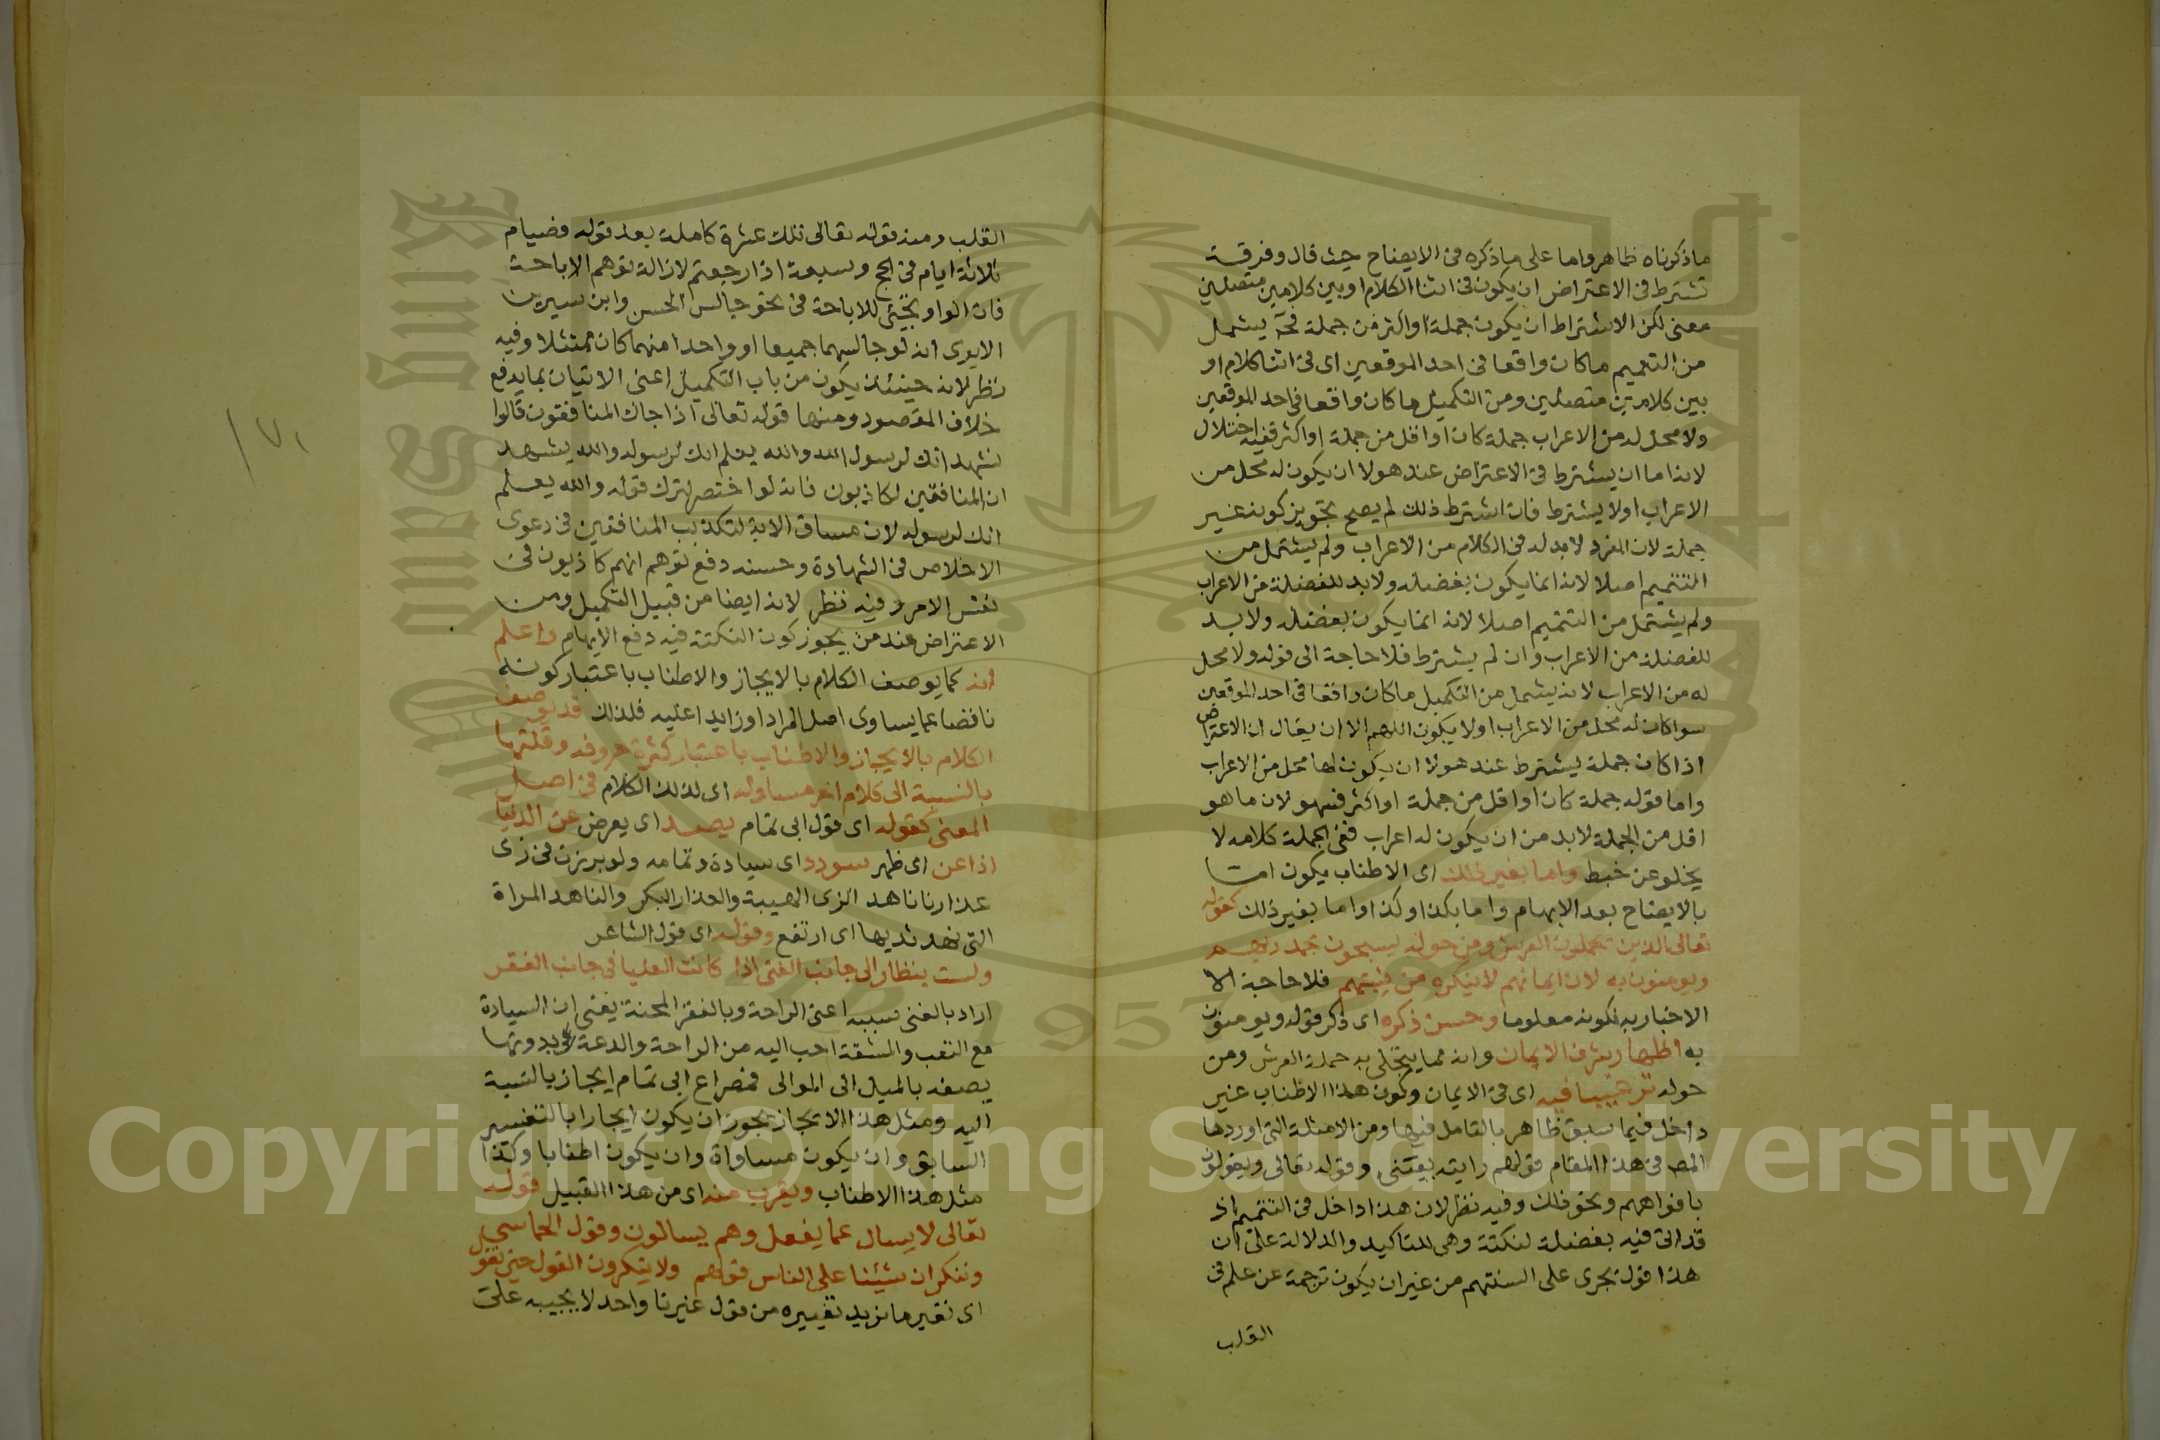 ماذكرناه ظاهر واما على ماذكره فى الايضاح حيث قال وفرقة
تشترط فى الاعتراض ان يكون فى اثنا الكلام او بين كلامين متصلين
معنى لكن الاشتراط ان يكون جملة او اكثر من جملة فح يشمل
من التتميم ماكان واقعا فى احد الموقعين اى فى اثنا كلام او
بين كلامين متصلين ومن التكميل ماكان واقعا فى احد الموقعين
ولا محل له من الاعراب جملة كان او اقل من جملة او اكثر ففيه اختلال
لانه اما ان يشترط فى الاعتراض عند هولا ان يكون له محل من
الاعراب اولا يشترط فان اشترط ذلك لم يصح تجويز كونه غير
جملة لان المفرد لابد له فى الكلام من الاعراب ولم يشتمل من
التتميم اصلا لانه انما يكون بفضله ولابد للفضلة من الاعراب
ولم يشتمل من التتميم اصلا لانه انما يكون بفضله ولا بد
للفضلة من الاعراب وان لم يشترط فلا حاجة الى قوله ولا محل
له من الاعراب لانه يشمل من التكميل ماكان واقعا فى احد الموقعين
سوا كان له محل من الاعراب اولا يكون اللهم الا ان يقال ان الاعتراض
اذا كان جملة يشترط عند هولا ان يكون لها محل من الاعراب
واما قوله جملة كان او اقل من جملة او اكثر فسهو لان ما هو
اقل من الجملة لابد من ان يكون له اعراب ففى الجملة كلامه لا
يخلو عن خبط واما بغير ذلك اى الاطناب يكون اما
بالايضاح بعد الابهام واما بكذا وكذا واما بغير ذلك كقوله
تعالى الذين يحملون العرش ومن حوله يسبحون بحمد ربهم
ويومنون به لان ايمانهم لاينكره من يثبتهم فلا حاجة الا
الاخبار به لكونه معلوما وحسن ذكره اى ذكر قوله ويومنون
به اظهار شرف الايمان وانه مما يتحلى به حملة العرش ومن
حوله ترغيبا فيه اى فى الايمان وكون هذا الاطناب غير
داخل فيما سبق ظاهر بالتامل فيها ومن الامثلة التى اوردها
المص فى هذا المقام قولهم رايته بعينى وقوله تعالى ويقولون
بافواههم ونحو ذلك وفيه نظر لان هذا داخل فى التتميم اذ
قد اتى فيه بفضلة لنكتة وهى للتاكيد والدلالة على ان
هذا قول يجرى على السنتهم من غير ان يكون ترجمة عن علم فى
القلب
القلب ومنه قوله تعالى تلك عشرة كاملة بعد قوله فصيام
ثلاثة ايام فى الحج وسبعة اذا رجعتم لازالة توهم الاباحة
فان الواو تجئى للاباحة فى نحو جالس الحسن وابن سيرين
الايرى انه لو جالسهما جميعا او واحدا منهما كان ممتثلا وفيه
نظر لانه حينئذ يكون من باب التكميل اعنى الاتيان بما يدفع
خلاف المقصود ومنها قوله تعالى اذا جاك المنافقون قالوا
نشهد انك لرسول الله والله يعلم انك لرسوله والله يشهد
ان المنافقين لكاذبون فانه لو اختصر لترك قوله والله يعلم
انك لرسوله لان مساق الاية لتكذيب المنافقين فى دعوى
الاخلاص فى الشهادة وحسنه دفع توهم انهم كاذبون فى
نفس الامر وفيه نظر لانه ايضا من قبيل التكميل ومن
الاعتراض عند من يجوز كون النكتة فيه دفع الايهام واعلم
انه كما يوصف الكلام بالايجاز والاطناب باعتبار كونه
ناقصا عما يساوى اصل المراد او زايدا عليه فلذلك قد يوصف
الكلام بالايجاز والاطناب باعتبار كثرة حروفه وقلتها
بالنسبة الى كلام اخر مساو له اى لذلك الكلام فى اصل
المعنى كقوله اى قول ابى تمام يصد اى يعرض عن الدنيا
اذا عن اى ظهر سودد اى سيادة وتمامه ولو برزت فى زى
عذارنا ناهد الزى الهيبة والعذار البكر والناهد المراة
التى نهد ثديها اى ارتفع وقوله اى قول الشاعر
ولست بنظار الى جانب الغنى اذا كانت العليا فى جانب الفقر
اراد بالغنى سببه اعنى الراحة وبالفقر المحنة يعنى ان السيادة
مع التعب والمشقة احب اليه من الراحة والدعة بدونها
يصفه بالميل الى الموالى فمصراع ابى تمام ايجاز بالنسبة
اليه ومثل هذا الايجاز يجوز ان يكون ايجازا بالتفسير
السابق وان يكون مساواة وان يكون اطنابا وكذا
مثل هذا الاطناب ويقرب منه اى من هذا القبيل قوله
تعالى لايسال عما يفعل وهم يسالون وقول الحماسى
وننكر ان شيئنا على الناس قولهم ولا ينكرون القول حين نقول
اى نغير ما نريد تغييره من قول غيرنا واحد لا يجيبه على
١٧١
Copyright © King Saud University
King Saud University
1957